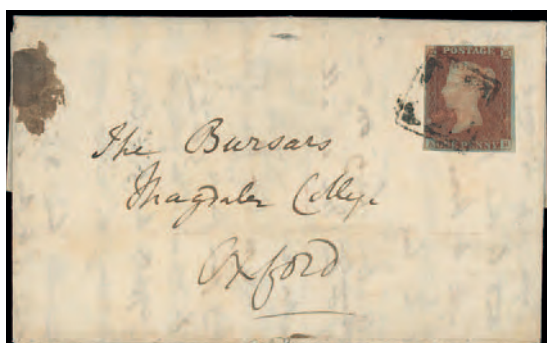 POSTAGE
ONE PENNY
The Bursars
Magdalen College
Oxford